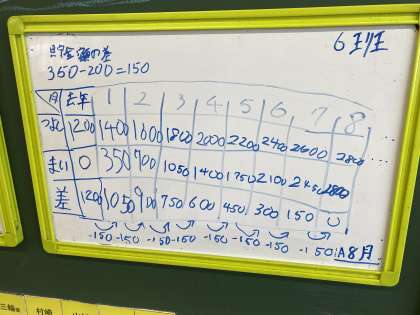 6班
貯金額の差
350-200=150
月 去年 1 2 3 4 5 6 7 8
つよし 1200 1400 1600 1800 2000 2200 2400 2600 2800 ...
まい 0 350 700 1050 1400 1750 2100 2450 2800 ...
差 1200 1050 900 750 600 450 300 150 0
-150 -150 -150 -150 -150 -150 -150 -150 A8月
三輪 村崎